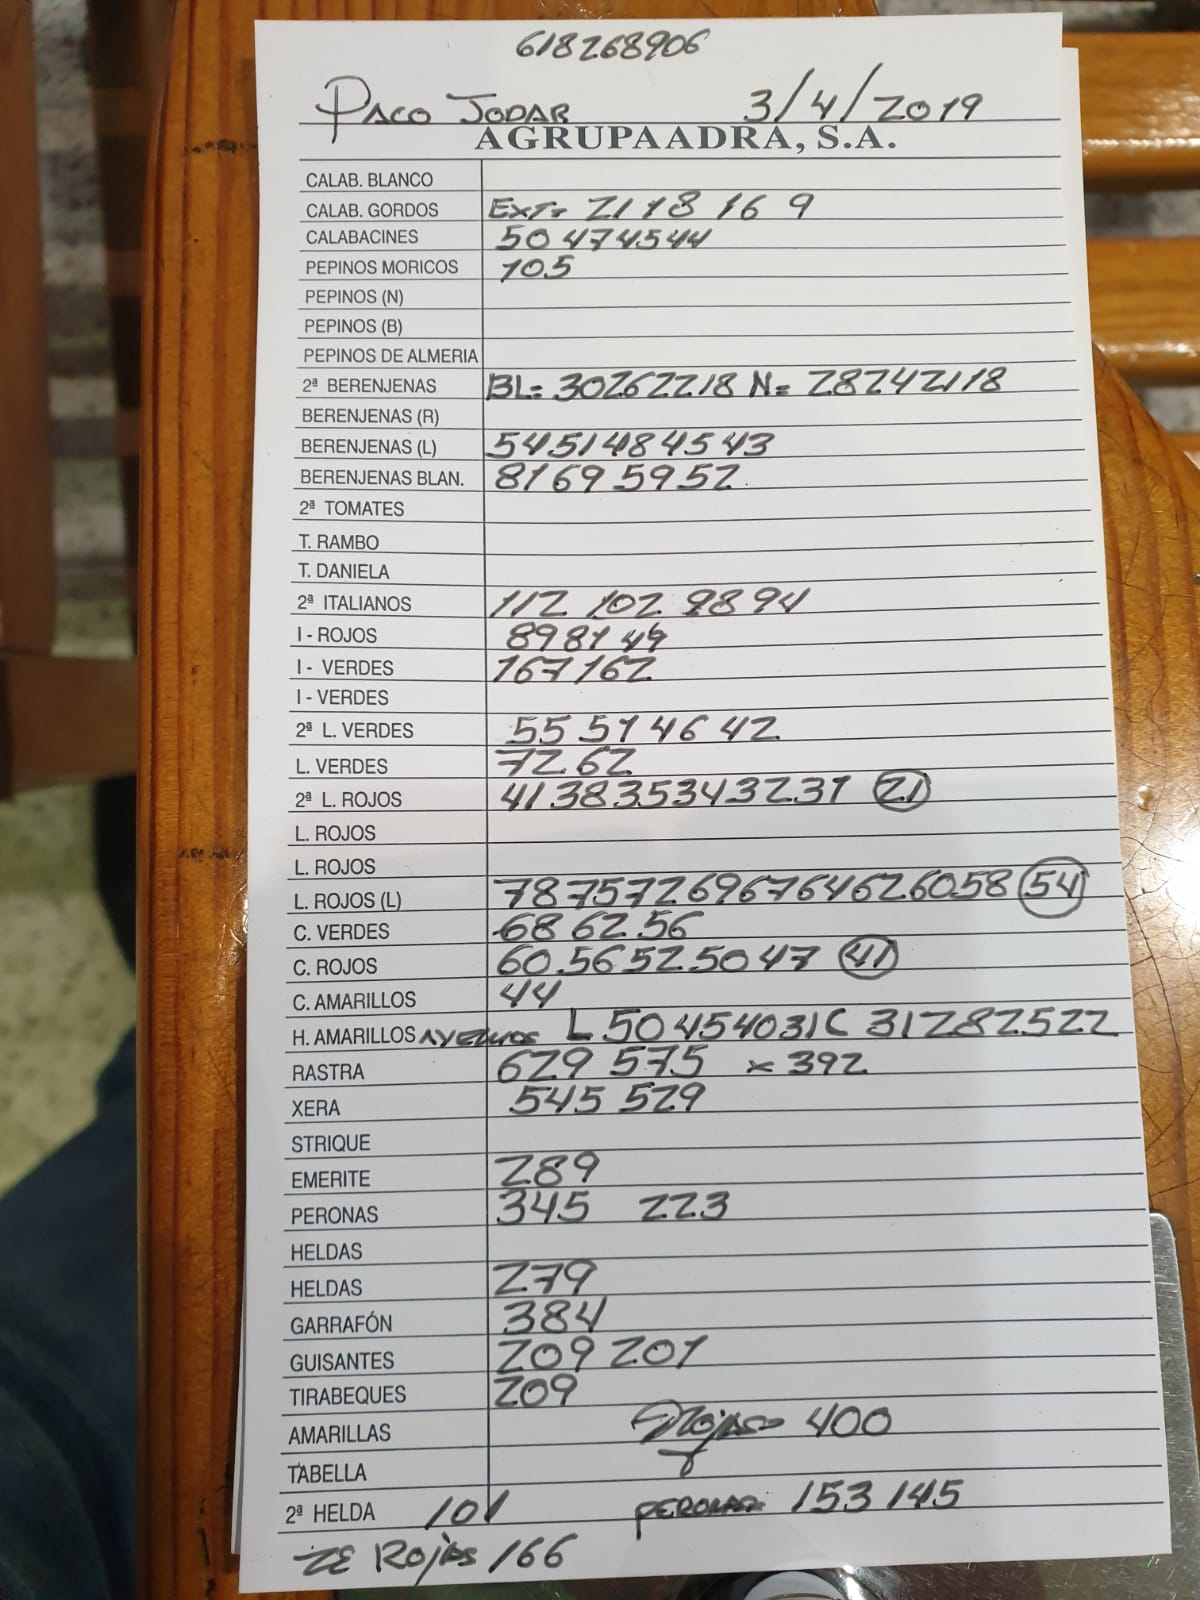 618268906
PACO JODAR 3/4/2019
AGRUPAADRA, S.A.
CALAB. BLANCO
CALAB. GORDOS EXT= 21 18 16 9
CALABACINES 50 47 45 44
PEPINOS MORICOS 105
PEPINOS (N)
PEPINOS (B)
PEPINOS DE ALMERIA
2ª BERENJENAS BL= 30 26 22 18 N= 28 24 21 18
BERENJENAS (R)
BERENJENAS (L) 54 51 48 45 43
BERENJENAS BLAN. 81 69 59 52
2ª TOMATES
T. RAMBO
T. DANIELA
2ª ITALIANOS 112 102 98 94
I - ROJOS 89 81 49
I - VERDES 167 162
I - VERDES
2ª L. VERDES 55 51 46 42
L. VERDES 72 62
2ª L. ROJOS 41 38 35 34 32 31 21
L. ROJOS
L. ROJOS
L. ROJOS (L) 78 75 72 69 67 64 62 60 58 54
C. VERDES 68 62 56
C. ROJOS 60 56 52 50 47 41
C. AMARILLOS 44
H. AMARILLOS L 50 45 40 31 C 31 28 25 22
RASTRA 629 575 x 392
XERA 545 529
STRIQUE
EMERITE 289
PERONAS 345 223
HELDAS
HELDAS 279
GARRAFÓN 384
GUISANTES 209 201
TIRABEQUES 209
AMARILLAS Rojas= 400
TABELLA
2ª HELDA 101 PERONAS= 153 145
Rojas 166